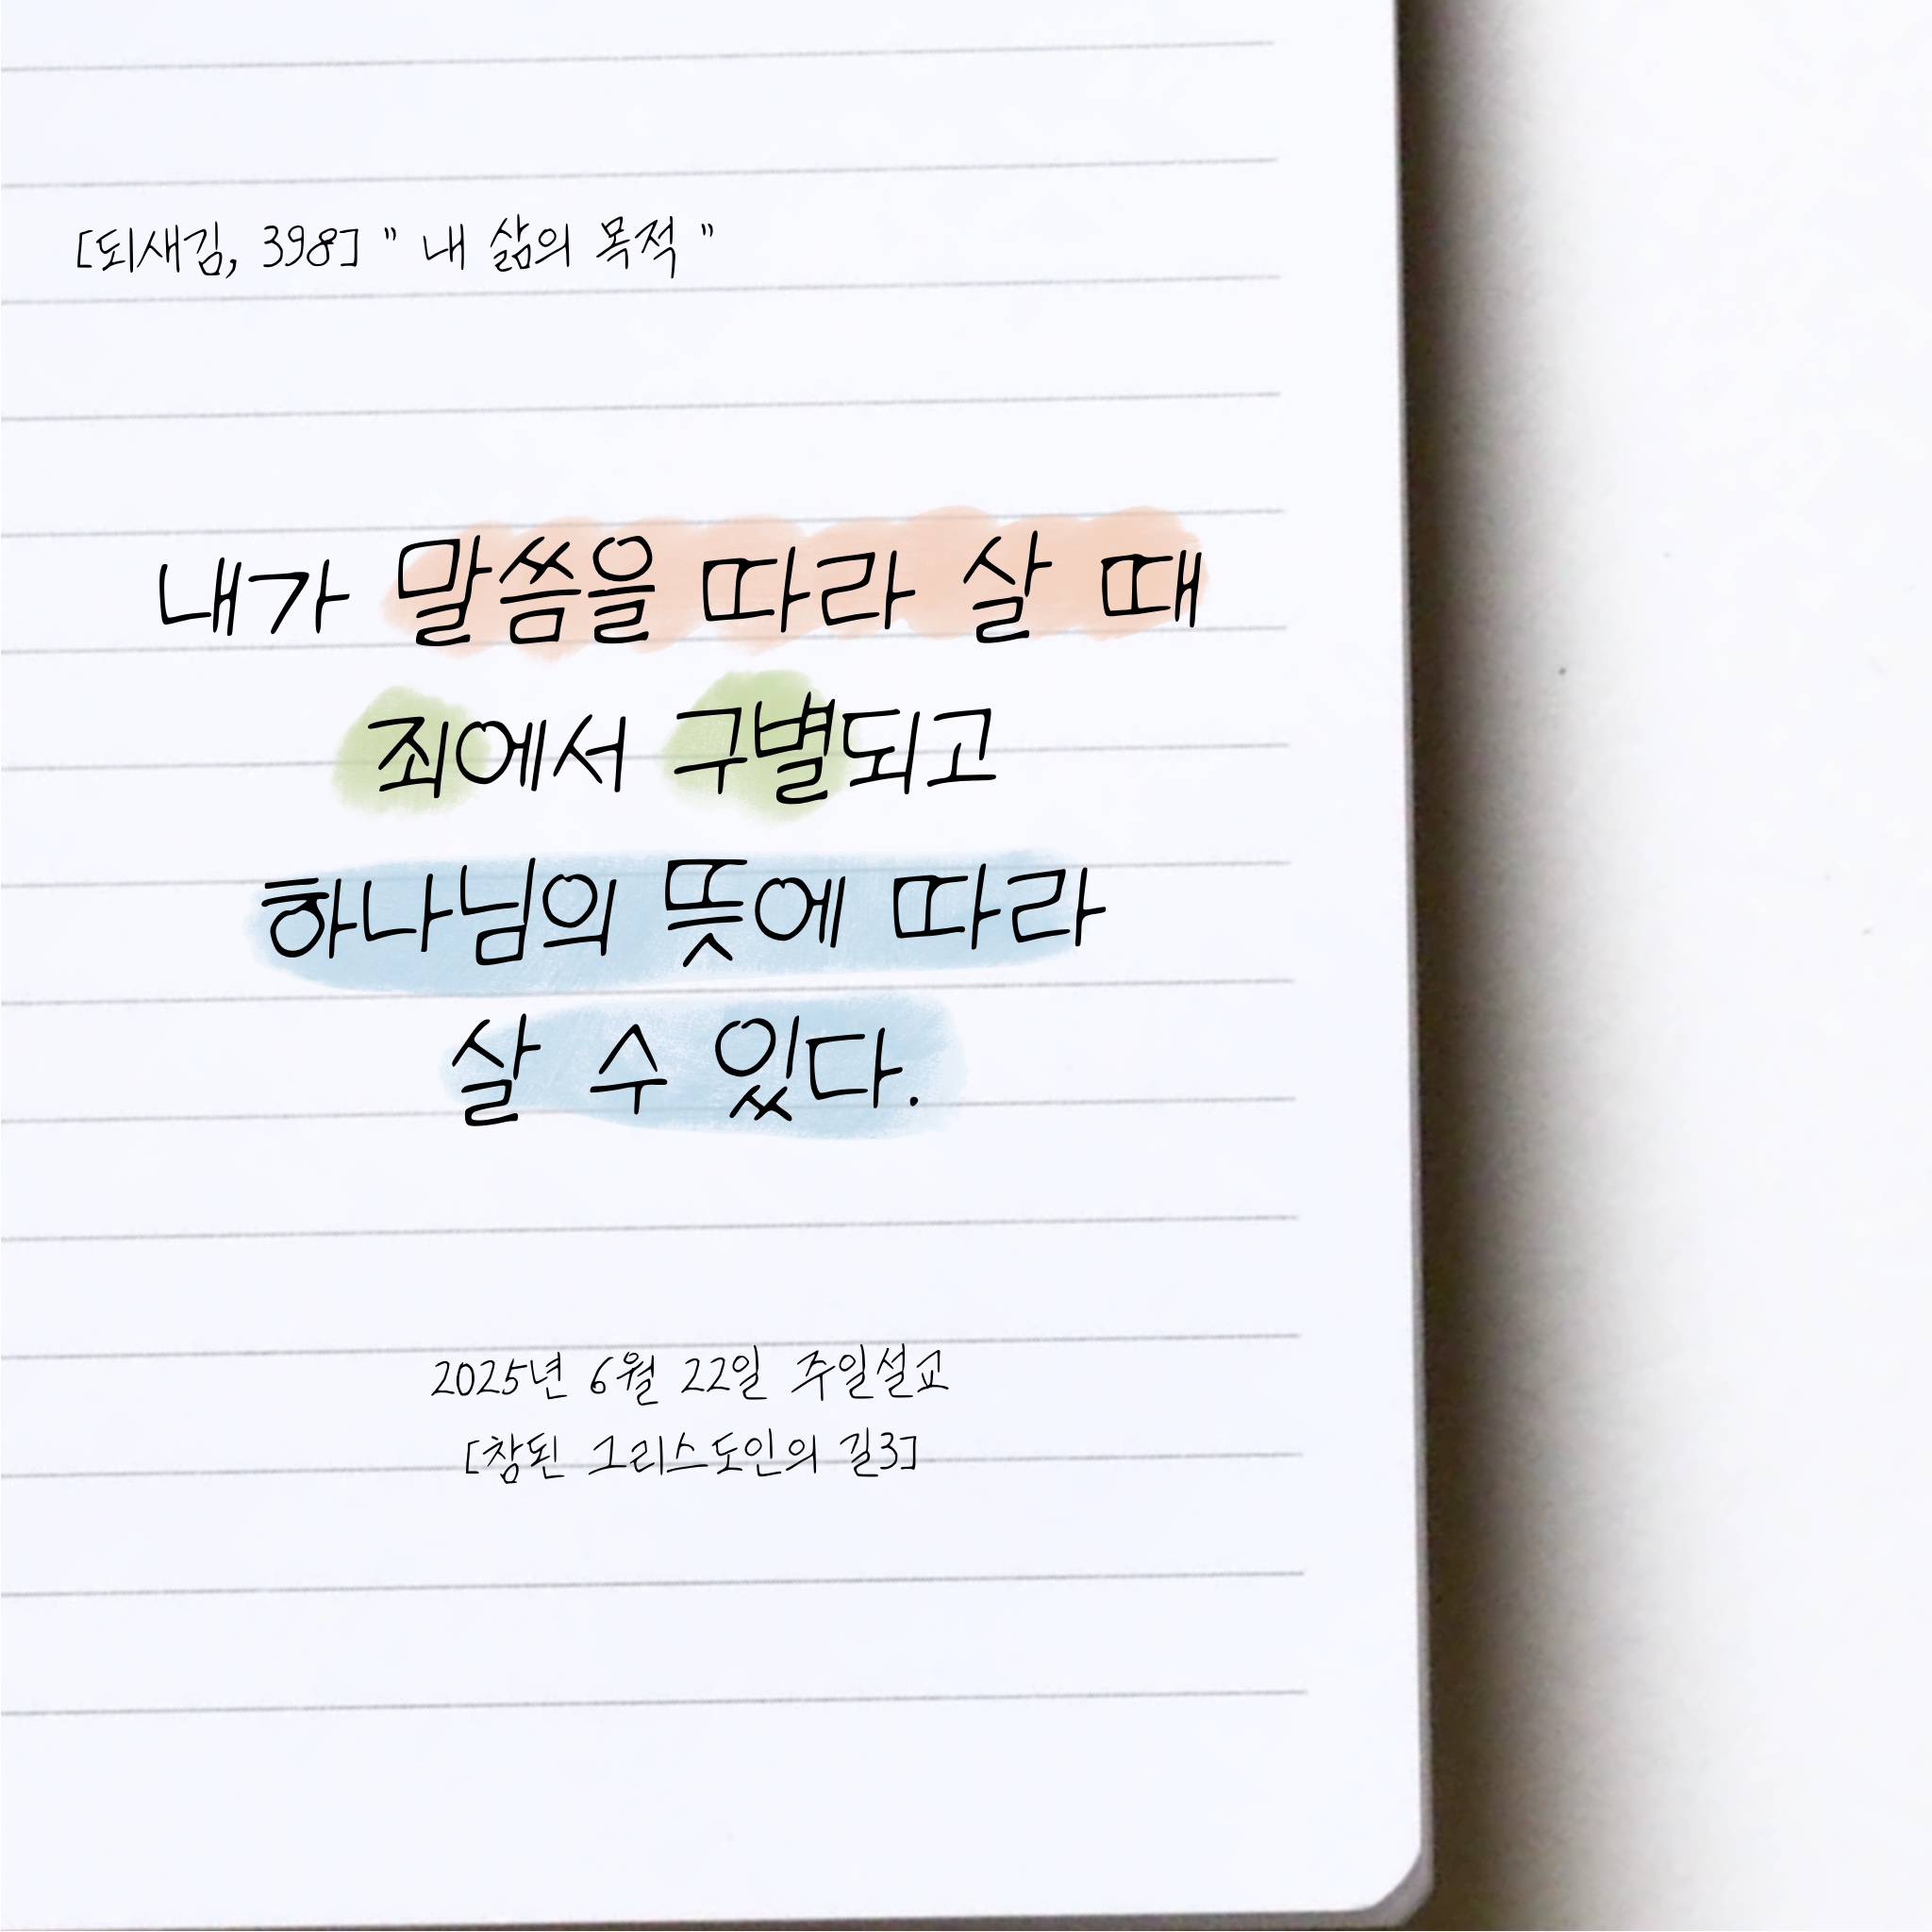 [되새김, 398] " 내 삶의 목적 "
내가 말씀을 따라 살 때
죄에서 구별되고
하나님의 뜻에 따라
살 수 있다.
2025년 6월 22일 주일설교
[참된 그리스도인의 길3]